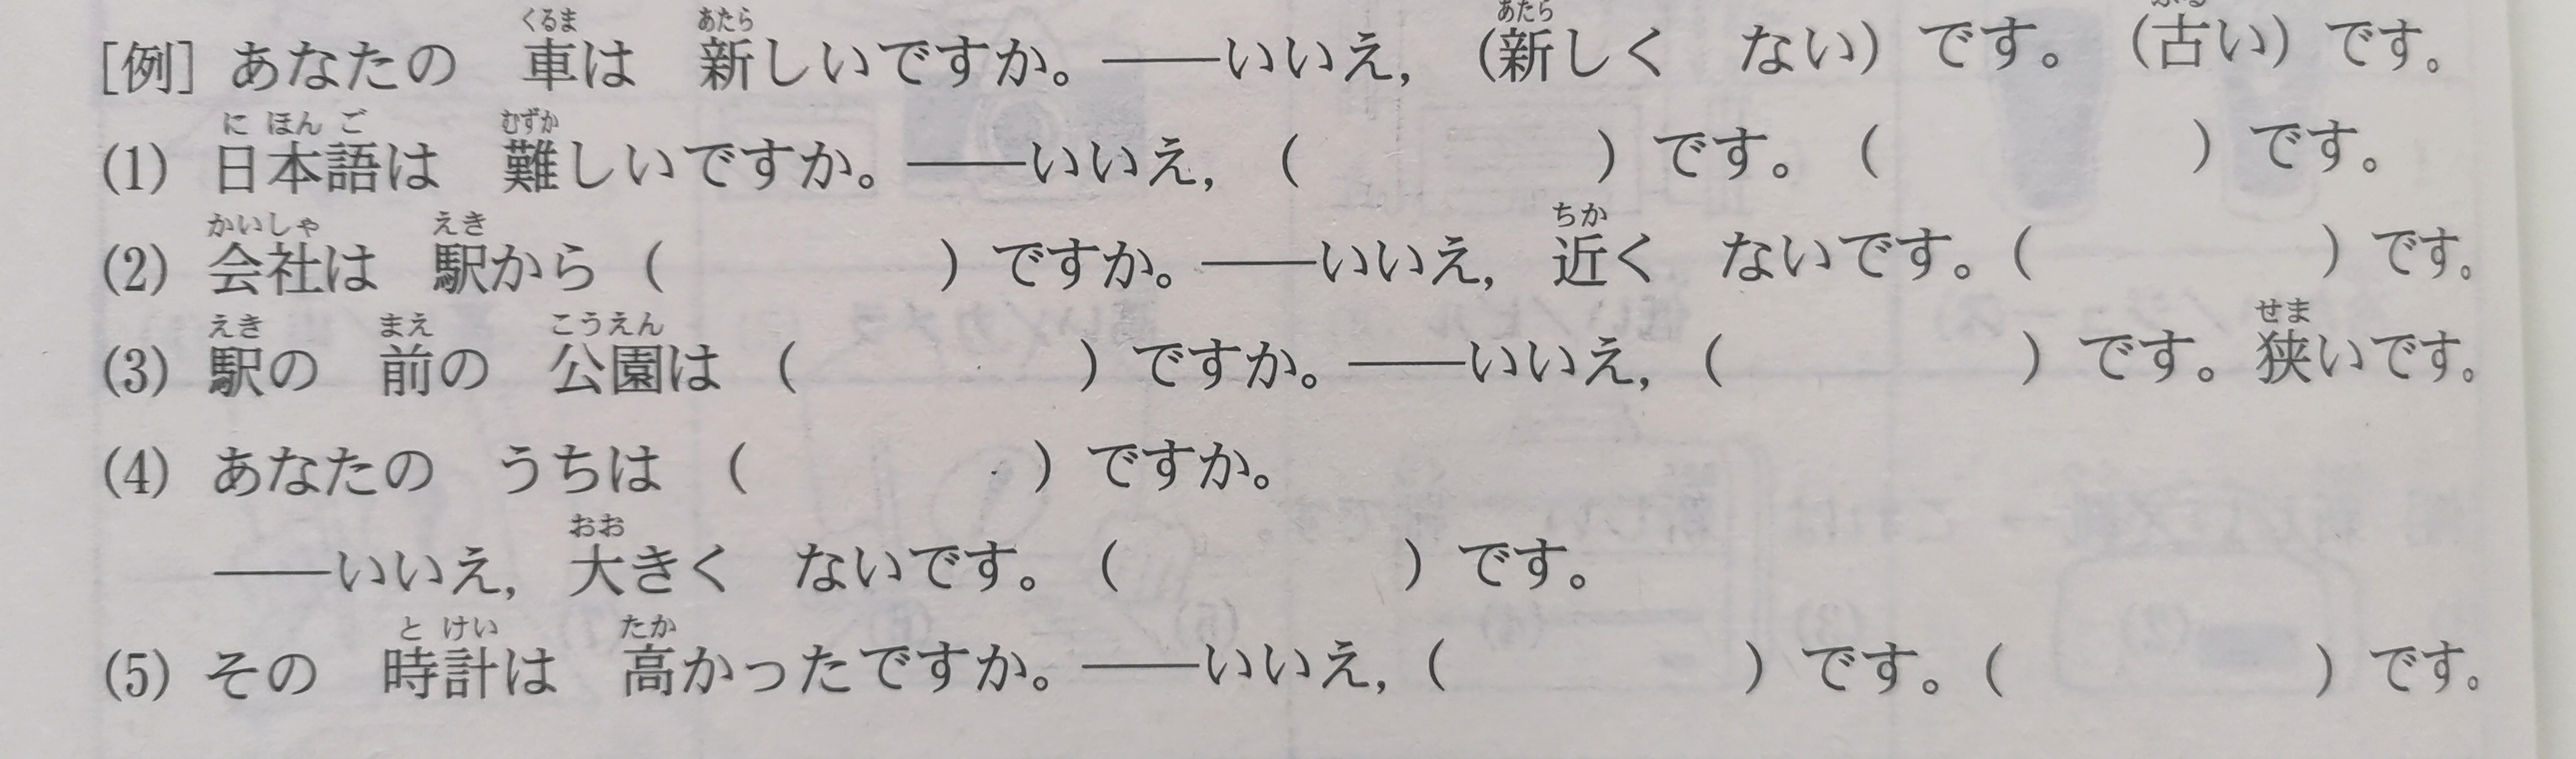 [例] あなたの 車は 新しいですか。――いいえ, (新しく ない) です。(古い) です。
(1) 日本語は 難しいですか。――いいえ, ( ) です。( ) です。
(2) 会社は 駅から ( ) ですか。――いいえ, 近く ないです。( ) です。
(3) 駅の 前の 公園は ( ) ですか。――いいえ, ( ) です。狭いです。
(4) あなたの うちは ( ) ですか。
――いいえ, 大きく ないです。( ) です。
(5) その 時計は 高かったですか。――いいえ, ( ) です。( ) です。